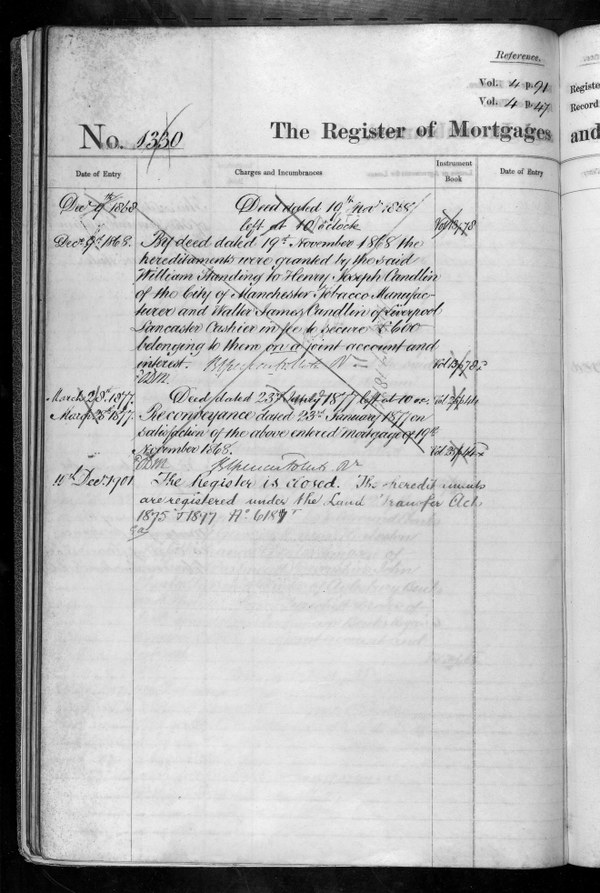 Reference.
Vol. 4 p. 91
Vol. 4 p. 47
No. 1330
The Register of Mortgages
and
Registe
Record
Date of Entry
Charges and Incumbrances
Instrument Book
Date of Entry
Decr 9th 1868
Deed dated 19th Novr 1868
left at 10 o'clock
Decr 9th 1868.
By deed dated 19th November 1868 the
hereditaments were granted by the said
William Standing to Henry Joseph Candlin
of the City of Manchester Tobacco Manufac-
turer and Walter James Candlin of Liverpool
Lancaster Cashier in fee to secure £600
belonging to them on a joint account and
interest.
March 28th 1877.
Deed dated 23rd 1877 left at 10 oc.
March 28th 1877.
Reconveyance dated 23rd January 1877 on
satisfaction of the above entered mortgage of 19th
November 1868.
11th Decr. 1901
The Register is closed. The heredit aments
are registered under the Land Transfer Acts
1875 & 1897 No